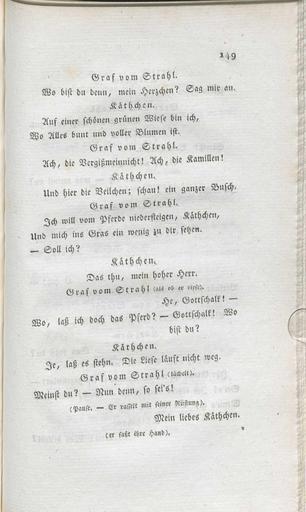 149
Graf vom Strahl.
Wo bist du denn, mein Herzchen? Sag mir an.
Käthchen.
Auf einer schönen grünen Wiese bin ich,
Wo Alles bunt und voller Blumen ist.
Graf vom Strahl.
Ach, die Vergißmeinnicht! Ach, die Kamillen!
Käthchen.
Und hier die Veilchen; schau! ein ganzer Busch.
Graf vom Strahl.
Ich will vom Pferde niedersteigen, Käthchen,
Und mich ins Gras ein wenig zu dir setzen.
— Soll ich?
Käthchen.
Das thu, mein hoher Herr.
Graf vom Strahl (als ob er riefe).
He, Gottschalk! —
Wo, laß ich doch das Pferd? — Gottschalk! Wo
bist du?
Käthchen.
Je, laß es stehn. Die Liese läuft nicht weg.
Graf vom Strahl (lächelt).
Meinst du? — Nun denn, so sei's!
(Pause. — Er rasselt mit seiner Rüstung).
Mein liebes Käthchen.
(er faßt ihre Hand).